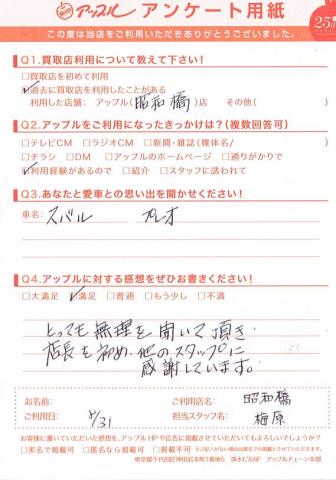 アップル アンケート用紙
この度は当店をご利用いただきありがとうございました。
Q1.買取店利用について教えて下さい!
□買取店を初めて利用
☑過去に買取店を利用したことがある
利用した店舗: アップル(昭和橋)店 その他( )
Q2.アップルをご利用になったきっかけは?(複数回答可)
□テレビCM □ラジオCM □新聞・雑誌(媒体名/ )
□チラシ □DM □アップルのホームページ □通りがかりで
☑利用経験があるので □紹介 □スタッフに誘われて
Q3.あなたと愛車との思い出を聞かせください!
車名: スバル プレオ
Q4.アップルに対する感想をぜひお書きください!
□大満足 ☑満足 □普通 □もう少し □不満
とっても無理を聞いて頂き
店長を初め、他のスタッフに
感謝しています。
お名前: ご利用店名: 昭和橋
ご利用日: 5/31 担当スタッフ名: 梅原
お客様に書いていただいた感想を、アップルHPや広告に掲載させていただいてもよろしいでしょうか?
□実名で掲載可 □匿名なら掲載可 □掲載不可
東京都千代田区神田岩本町1番地5 清水ビル6F アップルチェーン本部